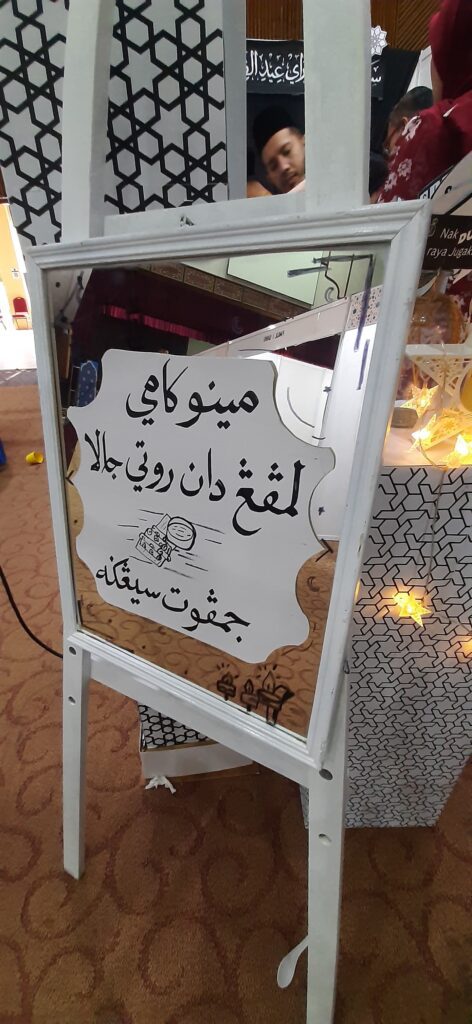 مينو کامي
لمڤڠ دان روتي جالا
جمڤوت سيڠݢه
Nak
raya Jugak